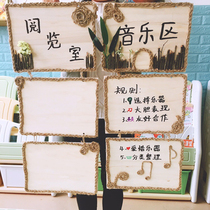 阅览室
音乐区
规则:
1.自选择乐器
2.大胆表现
3.友好合作
4.爱惜乐器
5.分类整理